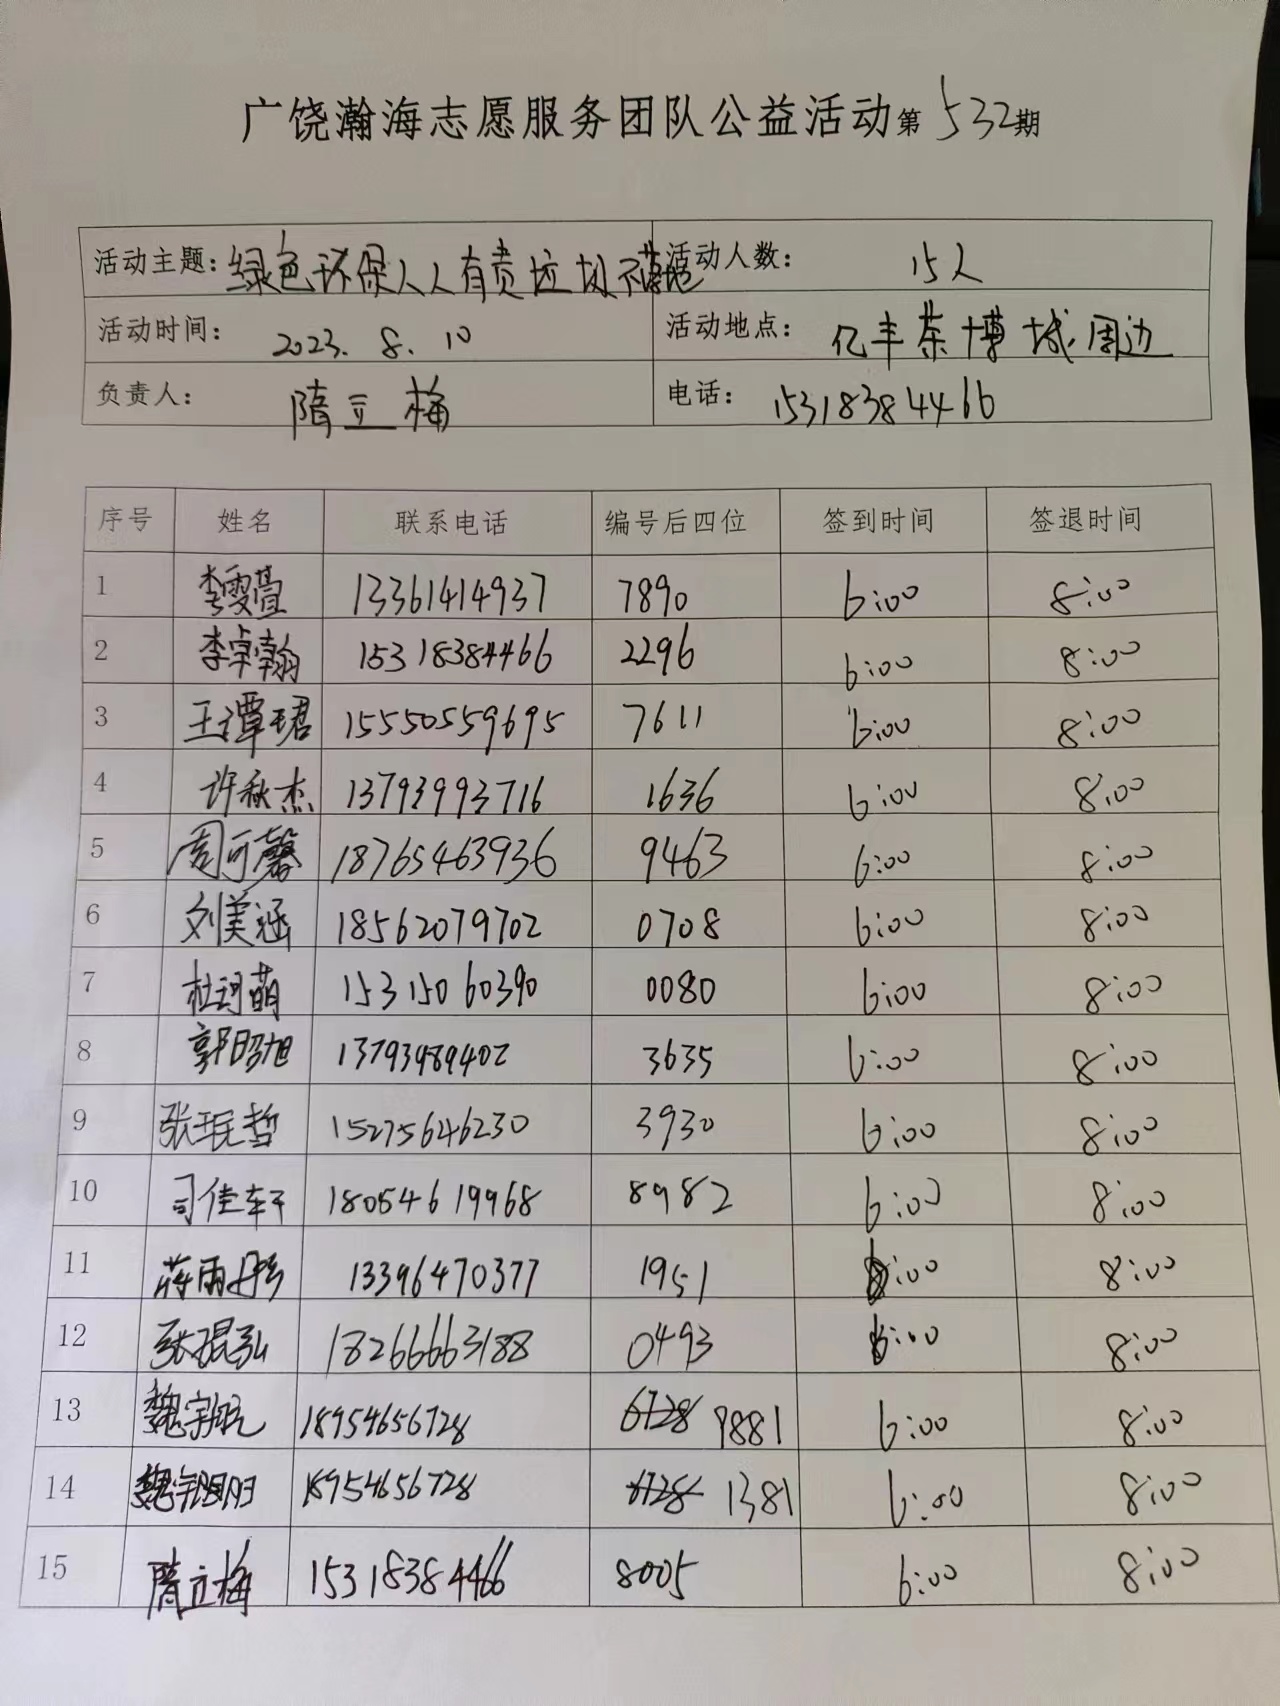 广饶瀚海志愿服务团队公益活动第532期
活动主题：绿色环保人人有责垃圾不落地 活动人数：15人
活动时间：2023.8.10 活动地点：亿丰茶博城周边
负责人：隋立梅 电话：15318384466
序号 姓名 联系电话 编号后四位 签到时间 签退时间
1 李雯萱 13361414937 7890 6:00 8:00
2 李卓翰 15318384466 2296 6:00 8:00
3 王谭珺 15550559695 7611 6:00 8:00
4 许秋杰 13793993716 1636 6:00 8:00
5 周可馨 18765463936 9463 6:00 8:00
6 刘美涵 18562079702 0708 6:00 8:00
7 杜珂萌 15315060390 0080 6:00 8:00
8 郭昭旭 13793989402 3635 6:00 8:00
9 张珉哲 15275646230 3930 6:00 8:00
10 司佳轩 18054619968 8982 6:00 8:00
11 蒋雨彤 13396470377 1951 6:00 8:00
12 张琨弘 18266663188 0493 6:00 8:00
13 魏宇航 18954656728 6728 9881 6:00 8:00
14 魏宇 18954656728 6728 1381 6:00 8:00
15 隋立梅 15318384466 8005 6:00 8:00